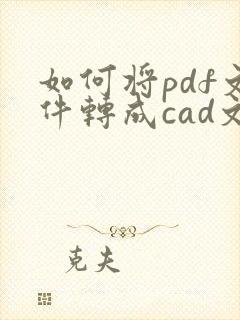 如何将pdf文
件轉成cad文
克夫